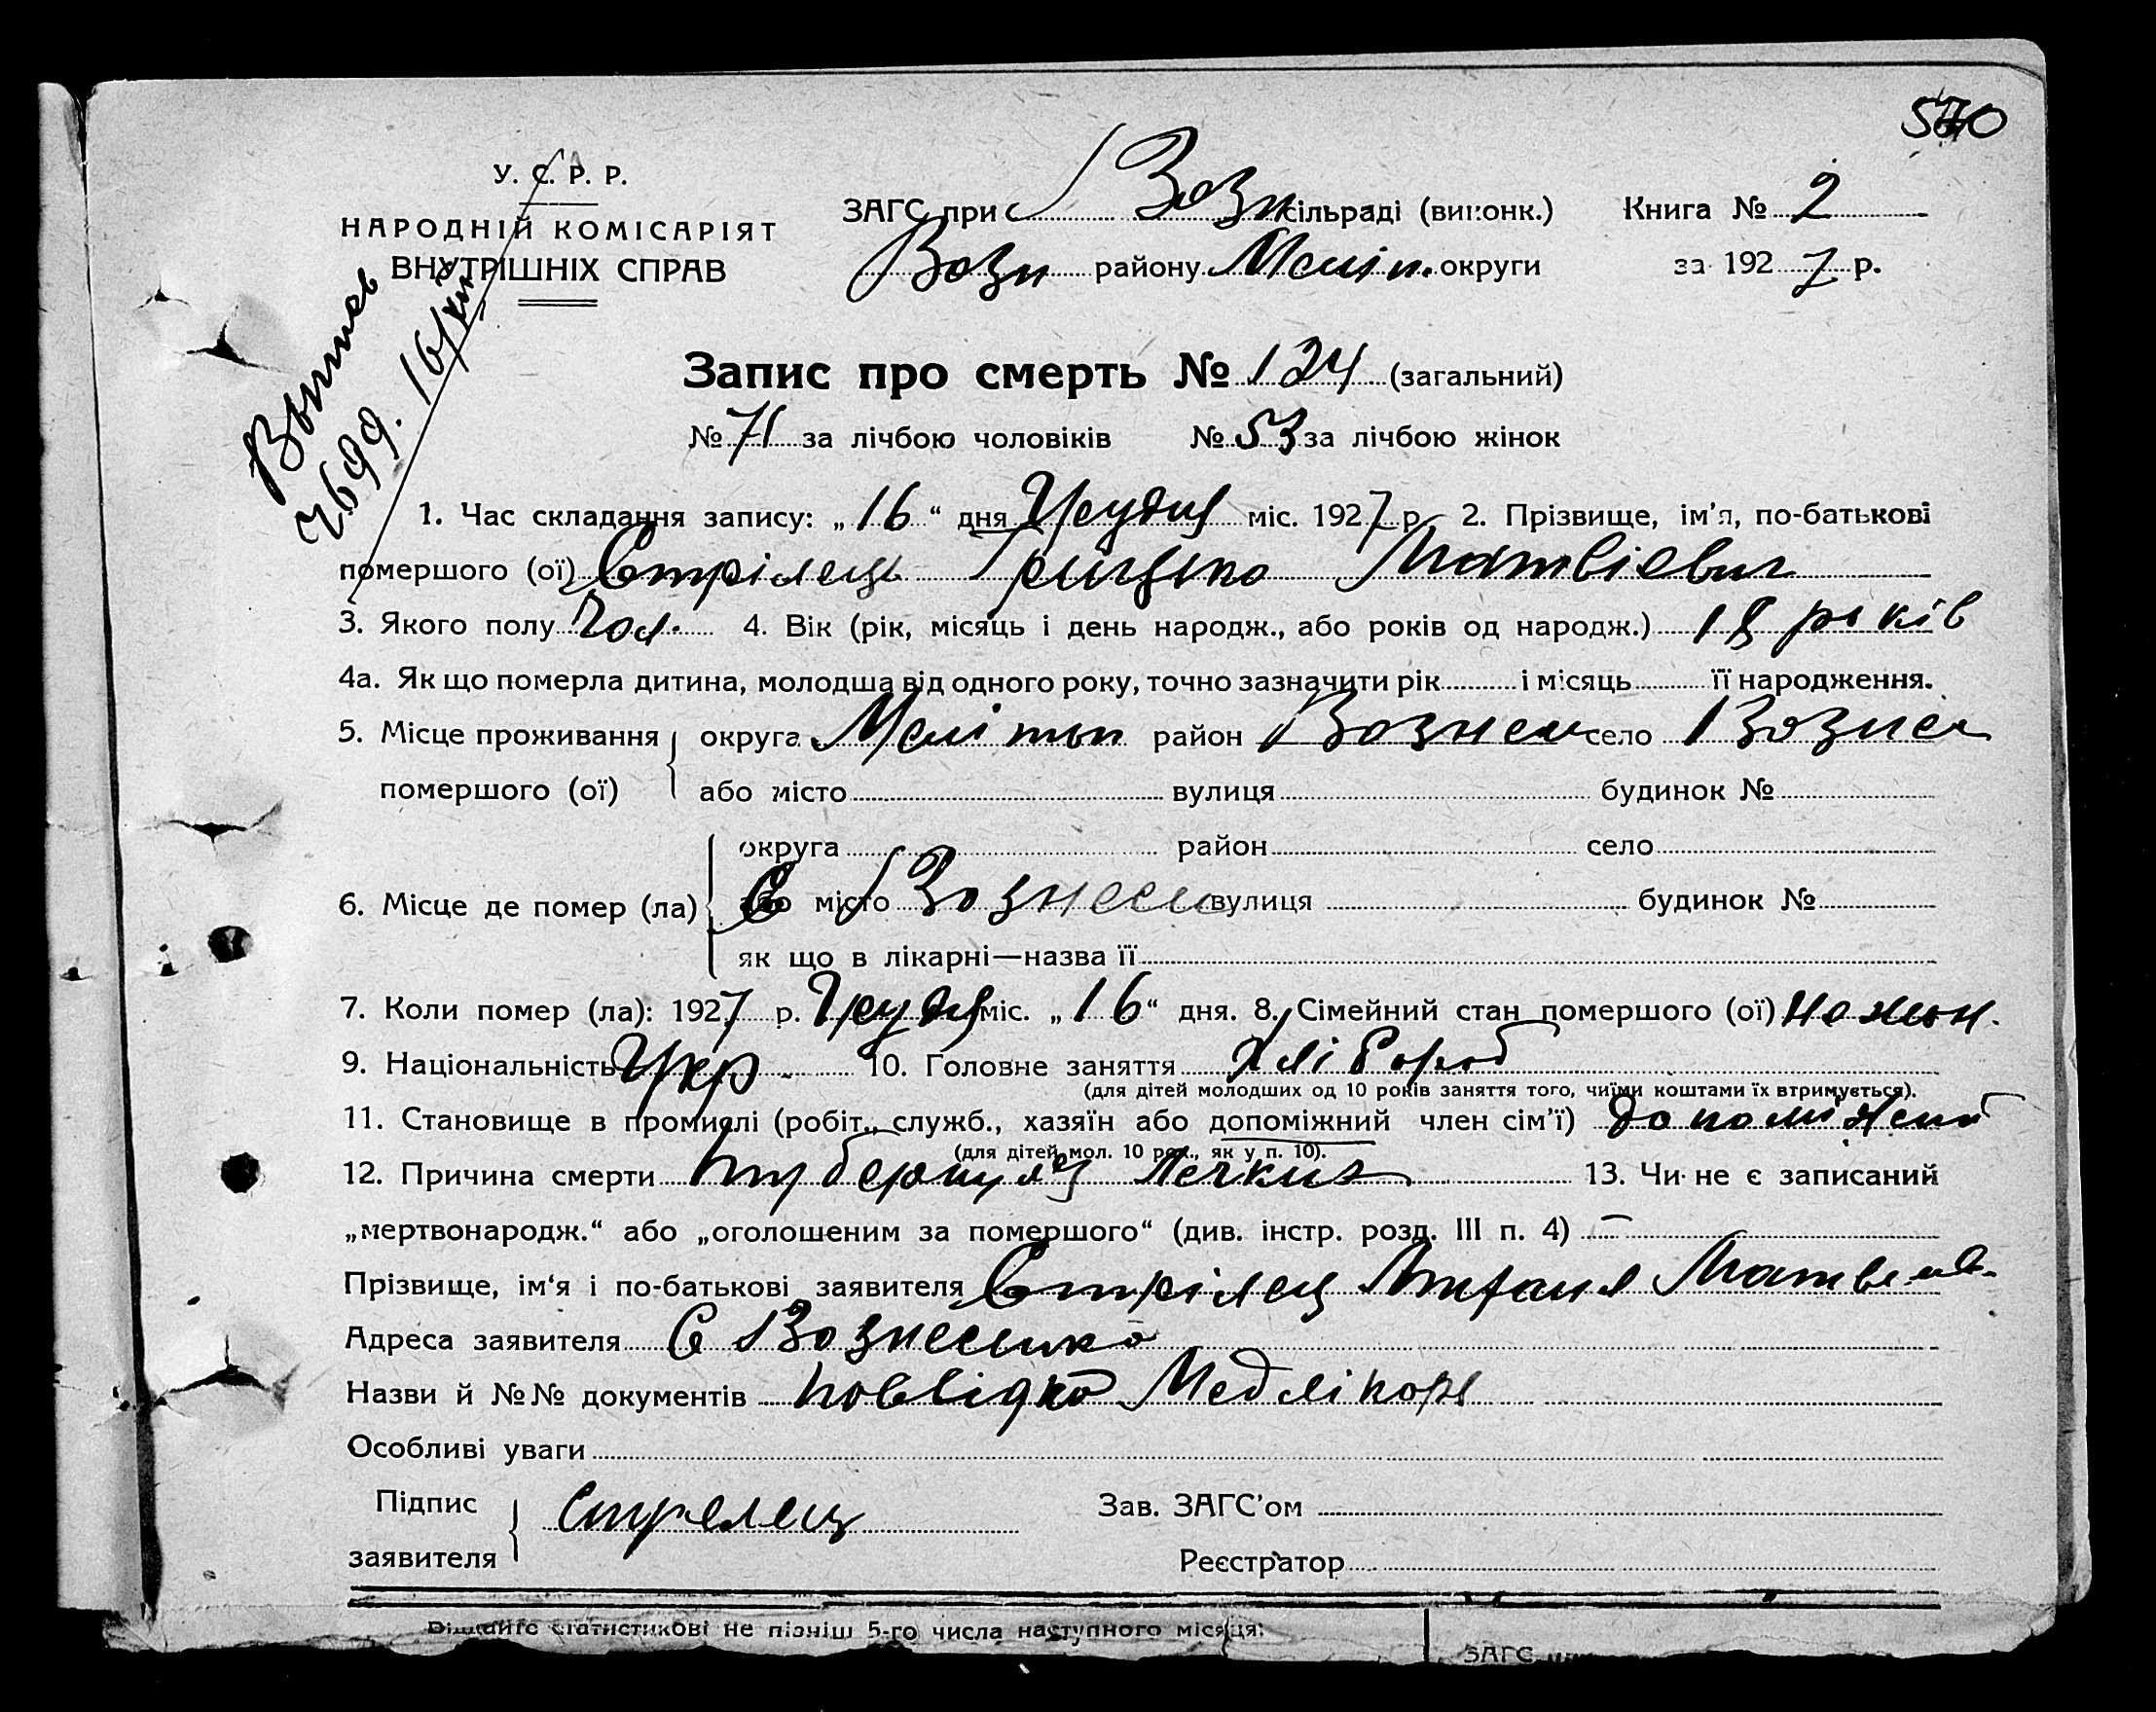 570
У. С. Р. Р.
НАРОДНІЙ КОМІСАРІЯТ
ВНУТРІШНІХ СПРАВ
ЗАГС при Возн сільраді (виконк.)
Возн району Меліт. округи
Книга № 2
за 1927 р.
Запис про смерть № 124 (загальний)
№ 71 за лічбою чоловіків № 53 за лічбою жінок
1. Час складання запису: „16“ дня Грудня міс. 1927 р. 2. Прізвище, ім'я, по-батькові
помершого (ої) Стрілець Грицько Матвієвич
3. Якого полу Чол. 4. Вік (рік, місяць і день народж., або років од народж.) 18 років
4а. Як що померла дитина, молодша від одного року, точно зазначити рік і місяць її народження.
5. Місце проживання округа Мелітоп район Вознесен село Вознес
помершого (ої) або місто вулиця будинок №
округа район село
6. Місце де помер (ла) або місто С Вознесен вулиця будинок №
як що в лікарні—назва її
7. Коли помер (ла): 1927 р. Грудня міс. „16“ дня. 8. Сімейний стан помершого (ої) не жон.
9. Національність Укр. 10. Головне заняття Хлібороб
(для дітей молодших од 10 років заняття того, чиїми коштами їх втримується).
11. Становище в промислі (робіт., служб., хазяїн або допоміжний член сім'ї) допоміжний
(для дітей мол. 10 рок., як у п. 10).
12. Причина смерти туберкульоз легких 13. Чи не є записаний
„мертвонародж.“ або „оголошеним за помершого“ (див. інстр. розд. III п. 4) —
Прізвище, ім'я і по-батькові заявителя Стрілец Матвеев.
Адреса заявителя С Вознесенка
Назви й №№ документів Медлікаря
Особливі уваги
Підпис
заявителя Стрелец
Зав. ЗАГС'ом
Реєстратор
статистикові не пізніш 5-го числа наступного місяця:
ЗАГС